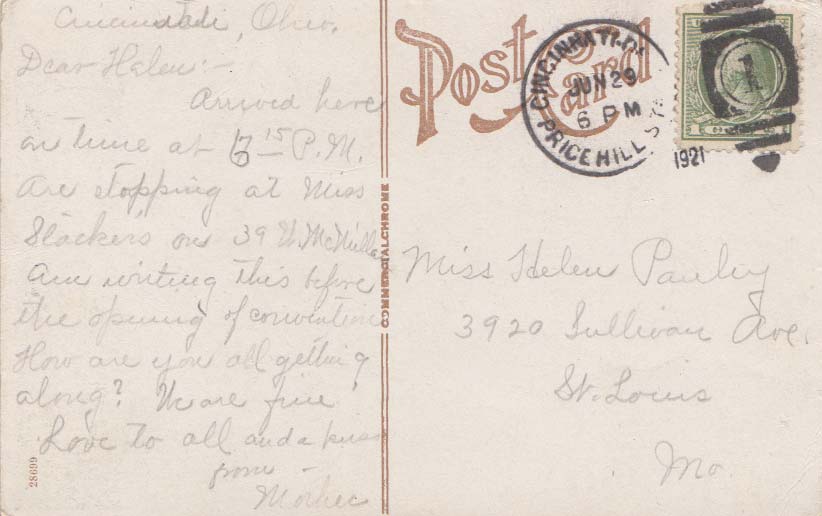 Cincinnati, Ohio.
Dear Helen:-
Arrived here
on time at 6 15 P.M.
Are stopping at Miss
Stackers on 39 W. McMillan
Am writing this before
the opening of convention
How are you all getting
along? We are fine
Love to all and a kiss
from -
Mother
28699
COMMERCIALCHROME
Post Card
CINCINNATI, O.
JUN 29
6 PM
1921
PRICE HILL STA.
1
Miss Helen Pauly
3920 Sullivan Ave.
St. Louis
Mo